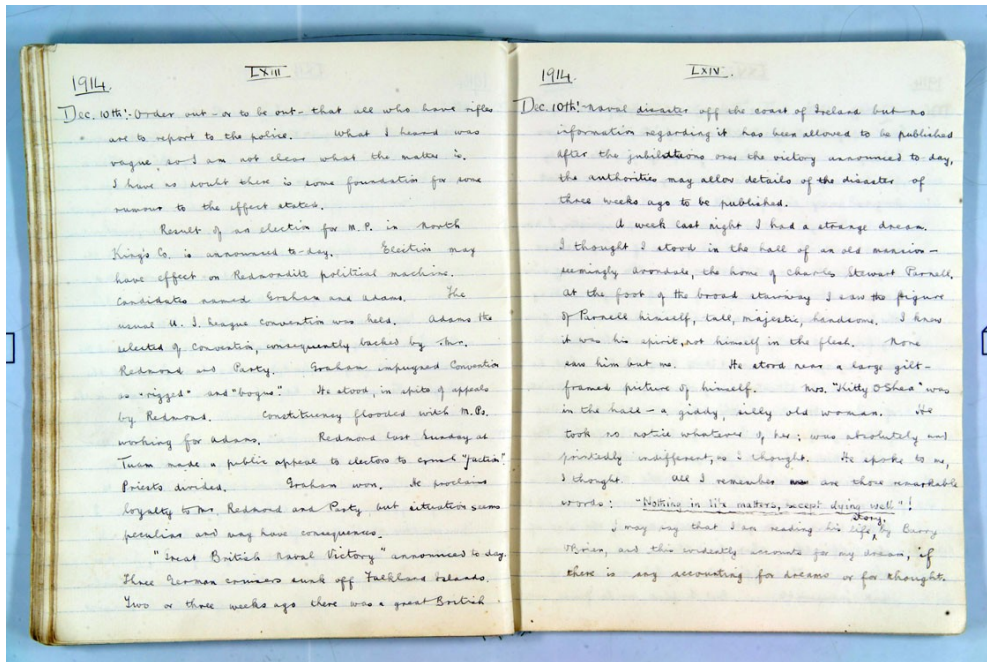 1914.
LXIII
Dec. 10th:- Order out - or to be out - that all who have rifles
are to report to the police. What I heard was
vague so I am not clear what the matter is.
I have no doubt there is some foundation for some
rumour to the effect stated.
Result of an election for M.P. in North
King's Co. is announced to-day. Election may
have effect on Redmondite political machine.
Candidates named Graham and Adams. The
usual U. I. League Convention was held. Adams the
selected of Convention, consequently backed by Mr.
Redmond and Party. Graham impugned Convention
as "rigged" and "bogus". He stood, in spite of appeals
by Redmond. Constituency flooded with M.Ps.
working for Adams. Redmond last Sunday at
Tuam made a public appeal to electors to crush "faction".
Priests divided. Graham won. He proclaims
loyalty to Mr. Redmond and Party but situation seems
peculiar and may have consequences.
"Great British Naval Victory" announced to day.
Three German cruisers sunk off Falkland Islands.
Two or three weeks ago there was a great British
1914.
LXIV.
Dec. 10th:- naval disaster off the coast of Ireland but no
information regarding it has been allowed to be published
after the jubilations over the victory announced to day,
the authorities may allow details of the disaster of
three weeks ago to be published.
A week last night I had a strange dream.
I thought I stood in the hall of an old mansion -
seemingly Avondale, the home of Charles Stewart Parnell.
At the foot of the broad stairway I saw the figure
of Parnell himself, tall, majestic, handsome. I knew
it was his spirit, not himself in the flesh. None
saw him but me. He stood near a large gilt-
framed picture of himself. Mrs. "Kitty O'Shea" was
in the hall - a giddy, silly old woman. He
took no notice whatever of her; was absolutely and
pointedly indifferent, as I thought. He spoke to me,
I thought. All I remember are these remarkable
words: "Nothing in life matters, except dying well"!
I may say that I am reading his life story, by Barry
O'Brien, and this evidently accounts for my dream, if
there is any accounting for dreams or for thought.